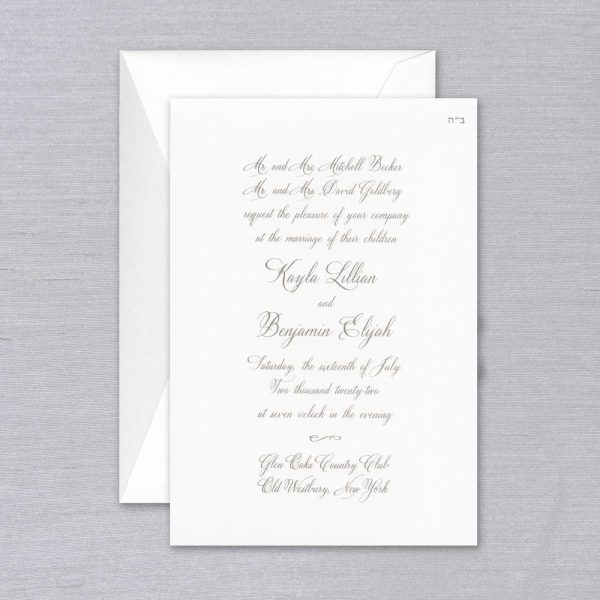 ב״ה
Mr. and Mrs. Mitchell Becker
Mr. and Mrs. David Goldberg
request the pleasure of your company
at the marriage of their children
Kayla Lillian
and
Benjamin Elijah
Saturday, the sixteenth of July
Two thousand twenty-two
at seven o'clock in the evening
Glen Oaks Country Club
Old Westbury, New York